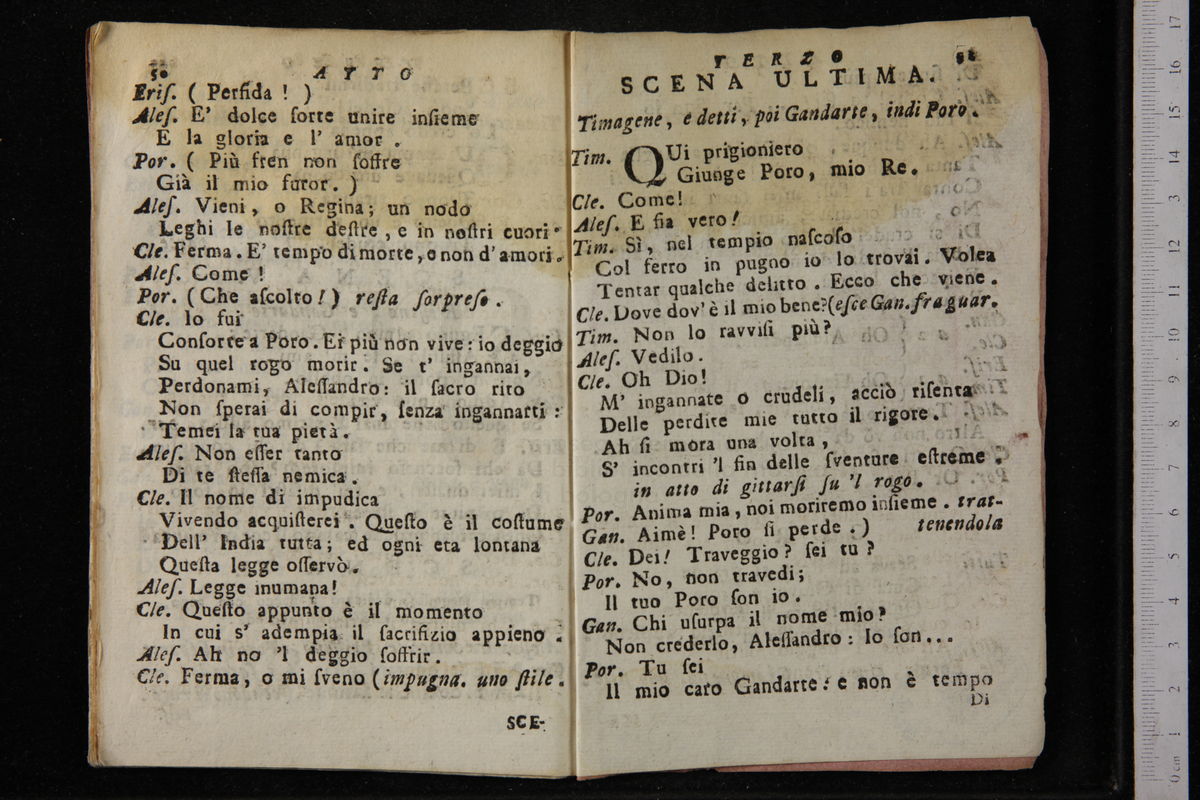 50 ATTO
Eriſ. ( Perfida ! )
Aleſ. E' dolce ſorte unire inſieme
E la gloria e l' amor .
Por. ( Più fren non ſoffre
Già il mio furor. )
Aleſ. Vieni, o Regina; un nodo
Leghi le noſtre deſtre , e in noſtri cuori
Cle. Ferma. E' tempo di morte, e non d'amori.
Aleſ. Come !
Por. (Che aſcolto!) reſta ſorpreſo .
Cle. Io fui
Conſorte a Poro. Ei più non vive: io deggio
Su quel rogo morir. Se t' ingannai,
Perdonami, Aleſſandro: il ſacro rito
Non ſperai di compir, ſenza ingannarti :
Temei la tua pietà.
Aleſ. Non eſſer tanto
Di te ſteſſa nemica.
Cle. Il nome di impudica
Vivendo acquiſterei . Queſto è il coſtume
Dell' India tutta; ed ogni eta lontana
Queſta legge oſſervò.
Aleſ. Legge inumana!
Cle. Queſto appunto è il momento
In cui s' adempia il ſacrifizio appieno .
Aleſ. Ah no 'l deggio ſoffrir.
Cle. Ferma, o mi ſveno (impugna. uno ſtile.
SCE-
TERZO 51
SCENA ULTIMA.
Timagene, e detti, poi Gandarte, indi Poro.
Tim. QUi prigioniero
Giunge Poro, mio Re.
Cle. Come!
Aleſ. E fia vero!
Tim. Sì, nel tempio naſcoſo
Col ferro in pugno io lo trovai. Volea
Tentar qualche delitto . Ecco che viene.
Cle. Dove dov'è il mio bene?(eſce Gan. fra guar.
Tim. Non lo ravviſi più?
Aleſ. Vedilo.
Cle. Oh Dio!
M' ingannate o crudeli, acciò riſenta
Delle perdite mie tutto il rigore.
Ah ſi mora una volta,
S' incontri 'l fin delle ſventure eſtreme .
in atto di gittarſi ſu 'l rogo.
Por. Anima mia, noi moriremo inſieme . trat-
Gan. Aimè! Poro ſi perde .) tenendola
Cle. Dei! Traveggio? ſei tu ?
Por. No, non travedi;
Il tuo Poro ſon io.
Gan. Chi uſurpa il nome mio?
Non crederlo, Aleſſandro: Io ſon...
Por. Tu ſei
Il mio caro Gandarte: e non è tempo
Di